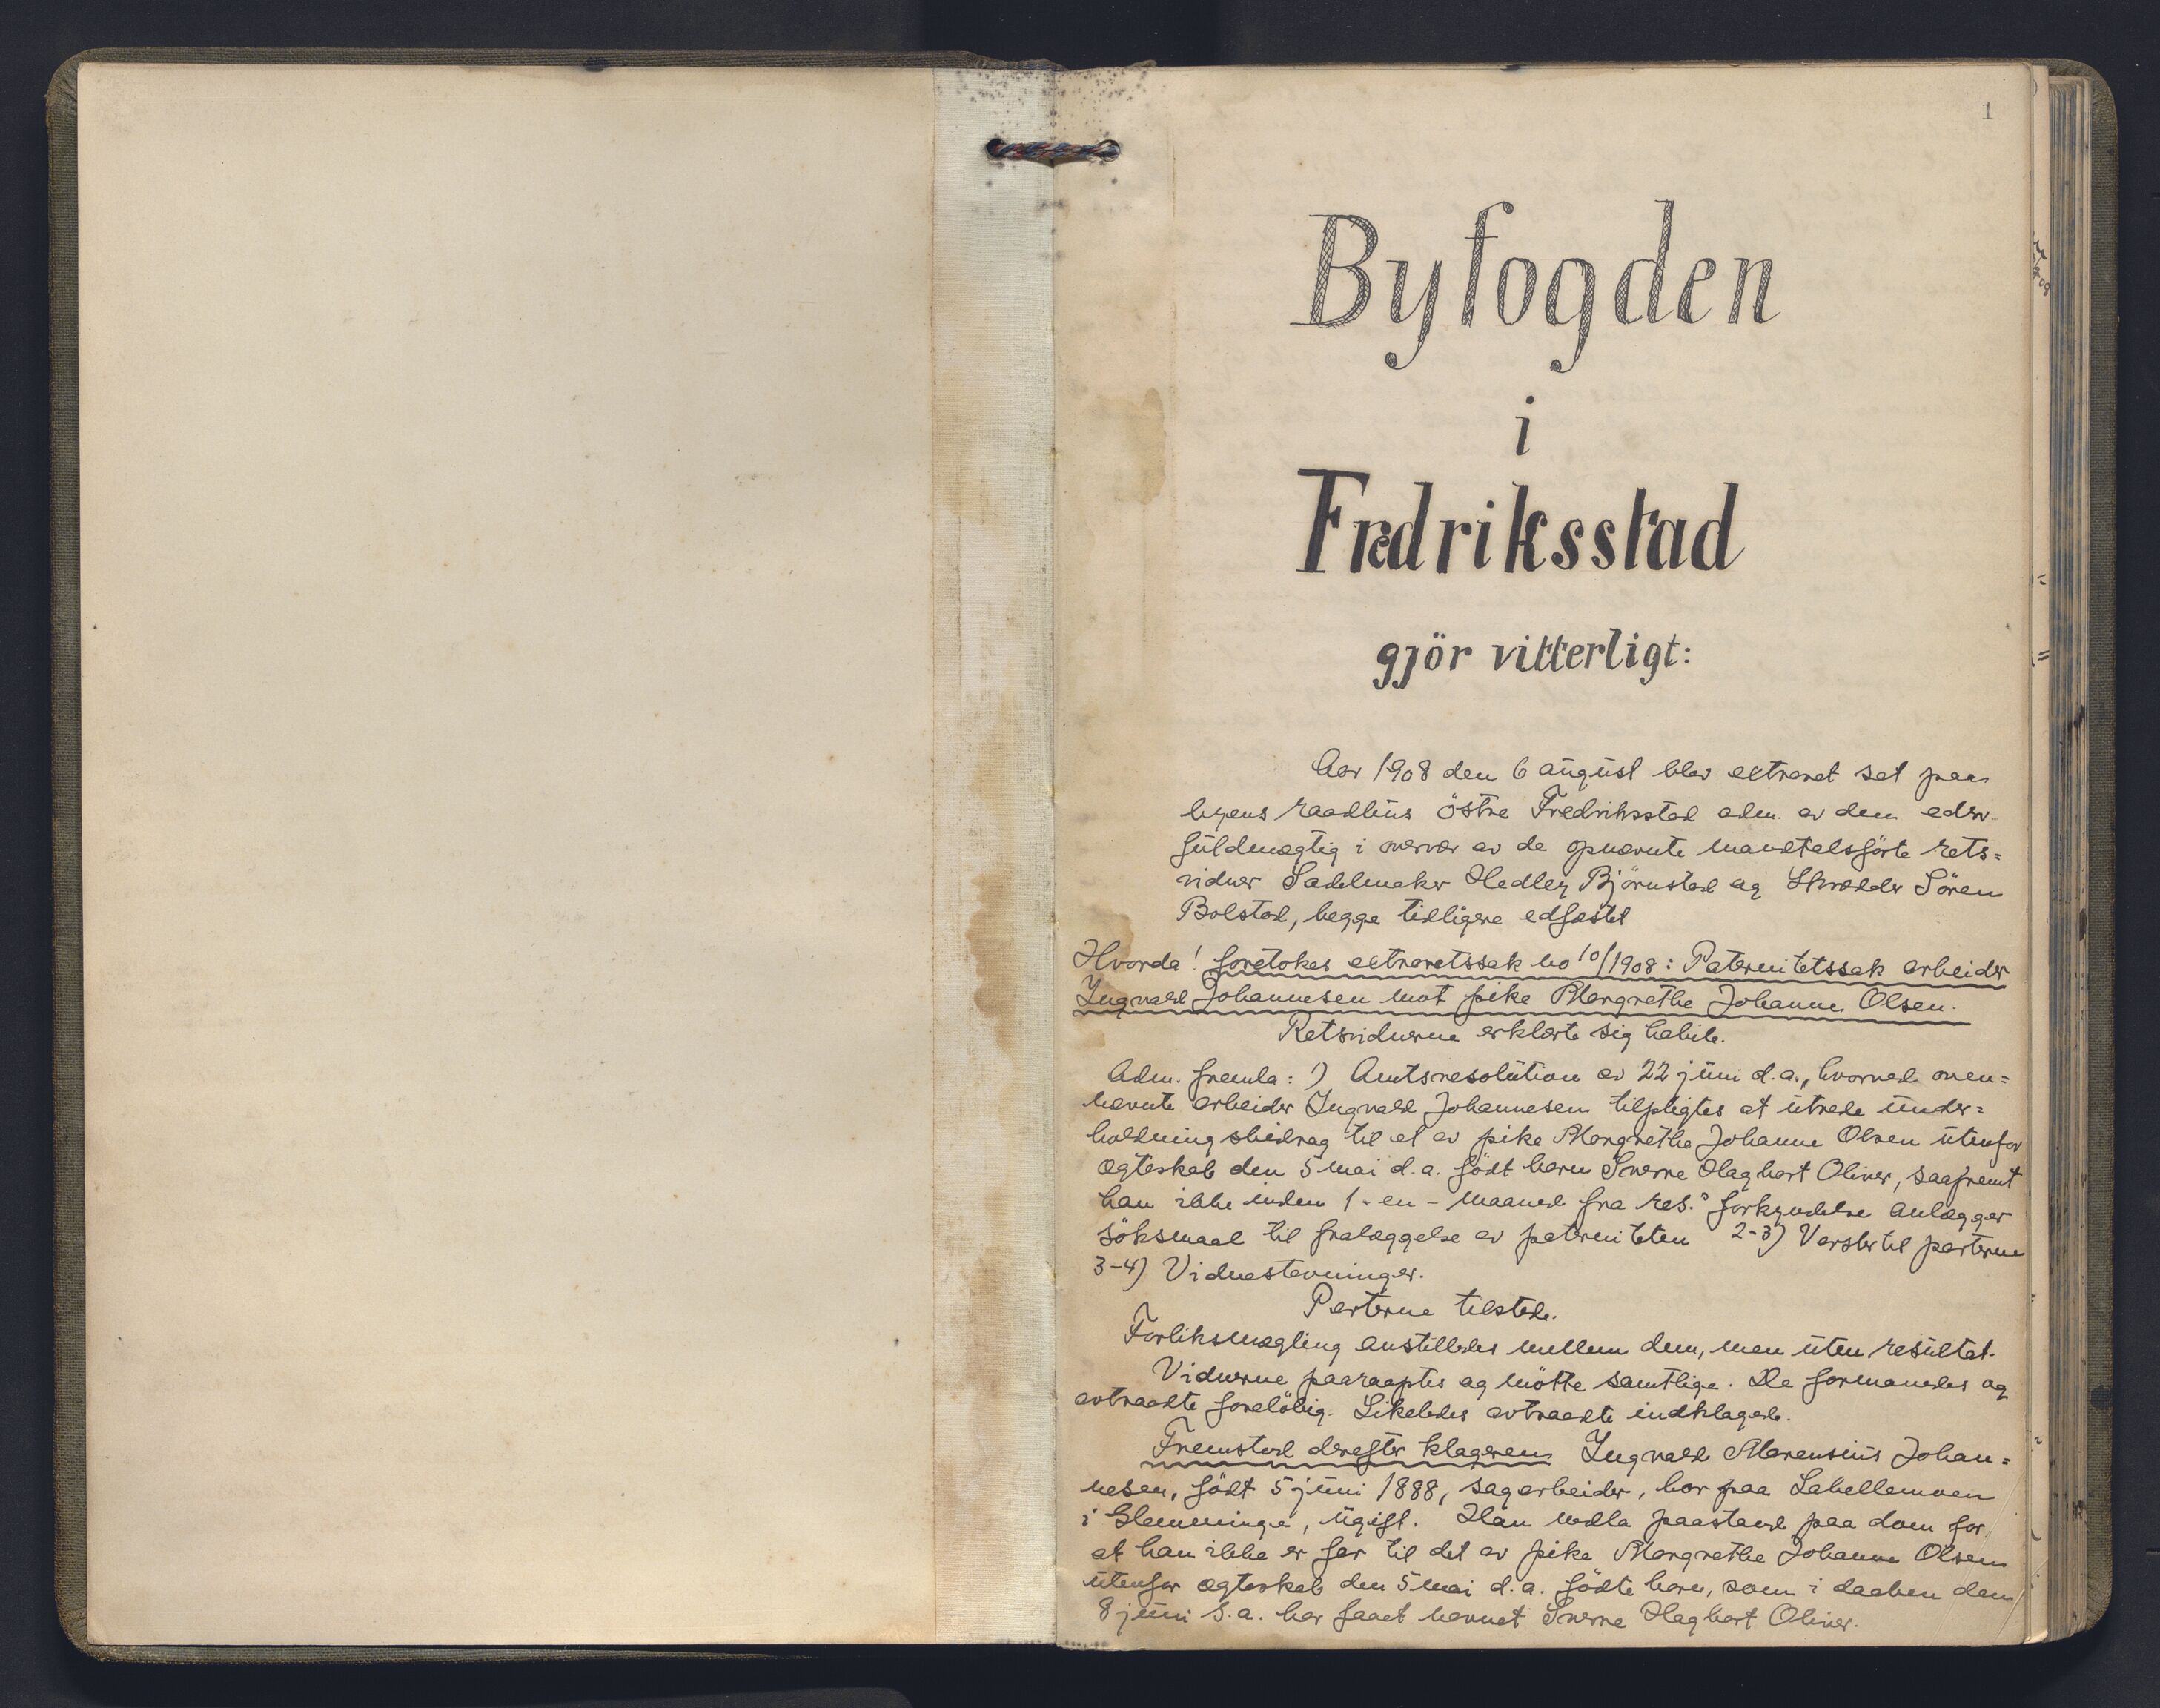 1
Byfogden
i
Fredriksstad
gjör vitterligt:
Aar 1908 den 6 august blev extraret sat paa
byens raadhus östre Fredriksstad adm. av den edsv.
fuldmægtig i overvær av de opnævnte mandtalsförte rets=
vidner Sadelmaker Hedley Björnstad og Skrædder Sören
Bolstad, begge tidligere edfæstet
Hvorda! foretokes extraretssak no 10/1908: Paternitetssak arbeider
Ingvald Johannesen mot pike Margrethe Johanne Olsen.
Retsvidnerne erklærte sig habile.
Adm. fremla: 1) Amtsresolution av 22 juni d.a., hvorved oven=
nævnte arbeider Ingvald Johannesen tilpligtes at utrede under=
holdningsbidrag til et av pike Margrethe Johanne Olsen utenfor
ægteskab den 5 mai d.a. födt barn Sverre Hagbart Oliver, saafremt
han ikke inden 1 - en - maaned fra res.s forkyndelse anlægger
söksmaal til fralæggelse av paterniteten 2-3) Varsler til parterne
3-4) Vidnestevninger.
Parterne tilstede.
Forliksmægling anstilledes mellem dem, men uten resultat.
Vidnerne paaraaptes og mötte samtlige. De formanedes og
avtraadte forelöbig. Likeledes avtraadte indklagede.
Fremstod derefter klageren Ingvald Marensius Johan=
nesen, födt 5 juni 1888, sagarbeider, bor paa Labellemoen
i Glemminge, ugift. Han nedla paastand paa dom for,
at han ikke er far til det av pike Margrethe Johanne Olsen
utenfor ægteskab den 5 mai d.a. födte barn, som i daaben den
8 juni s.a. har faaet navnet Sverre Hagbart Oliver.